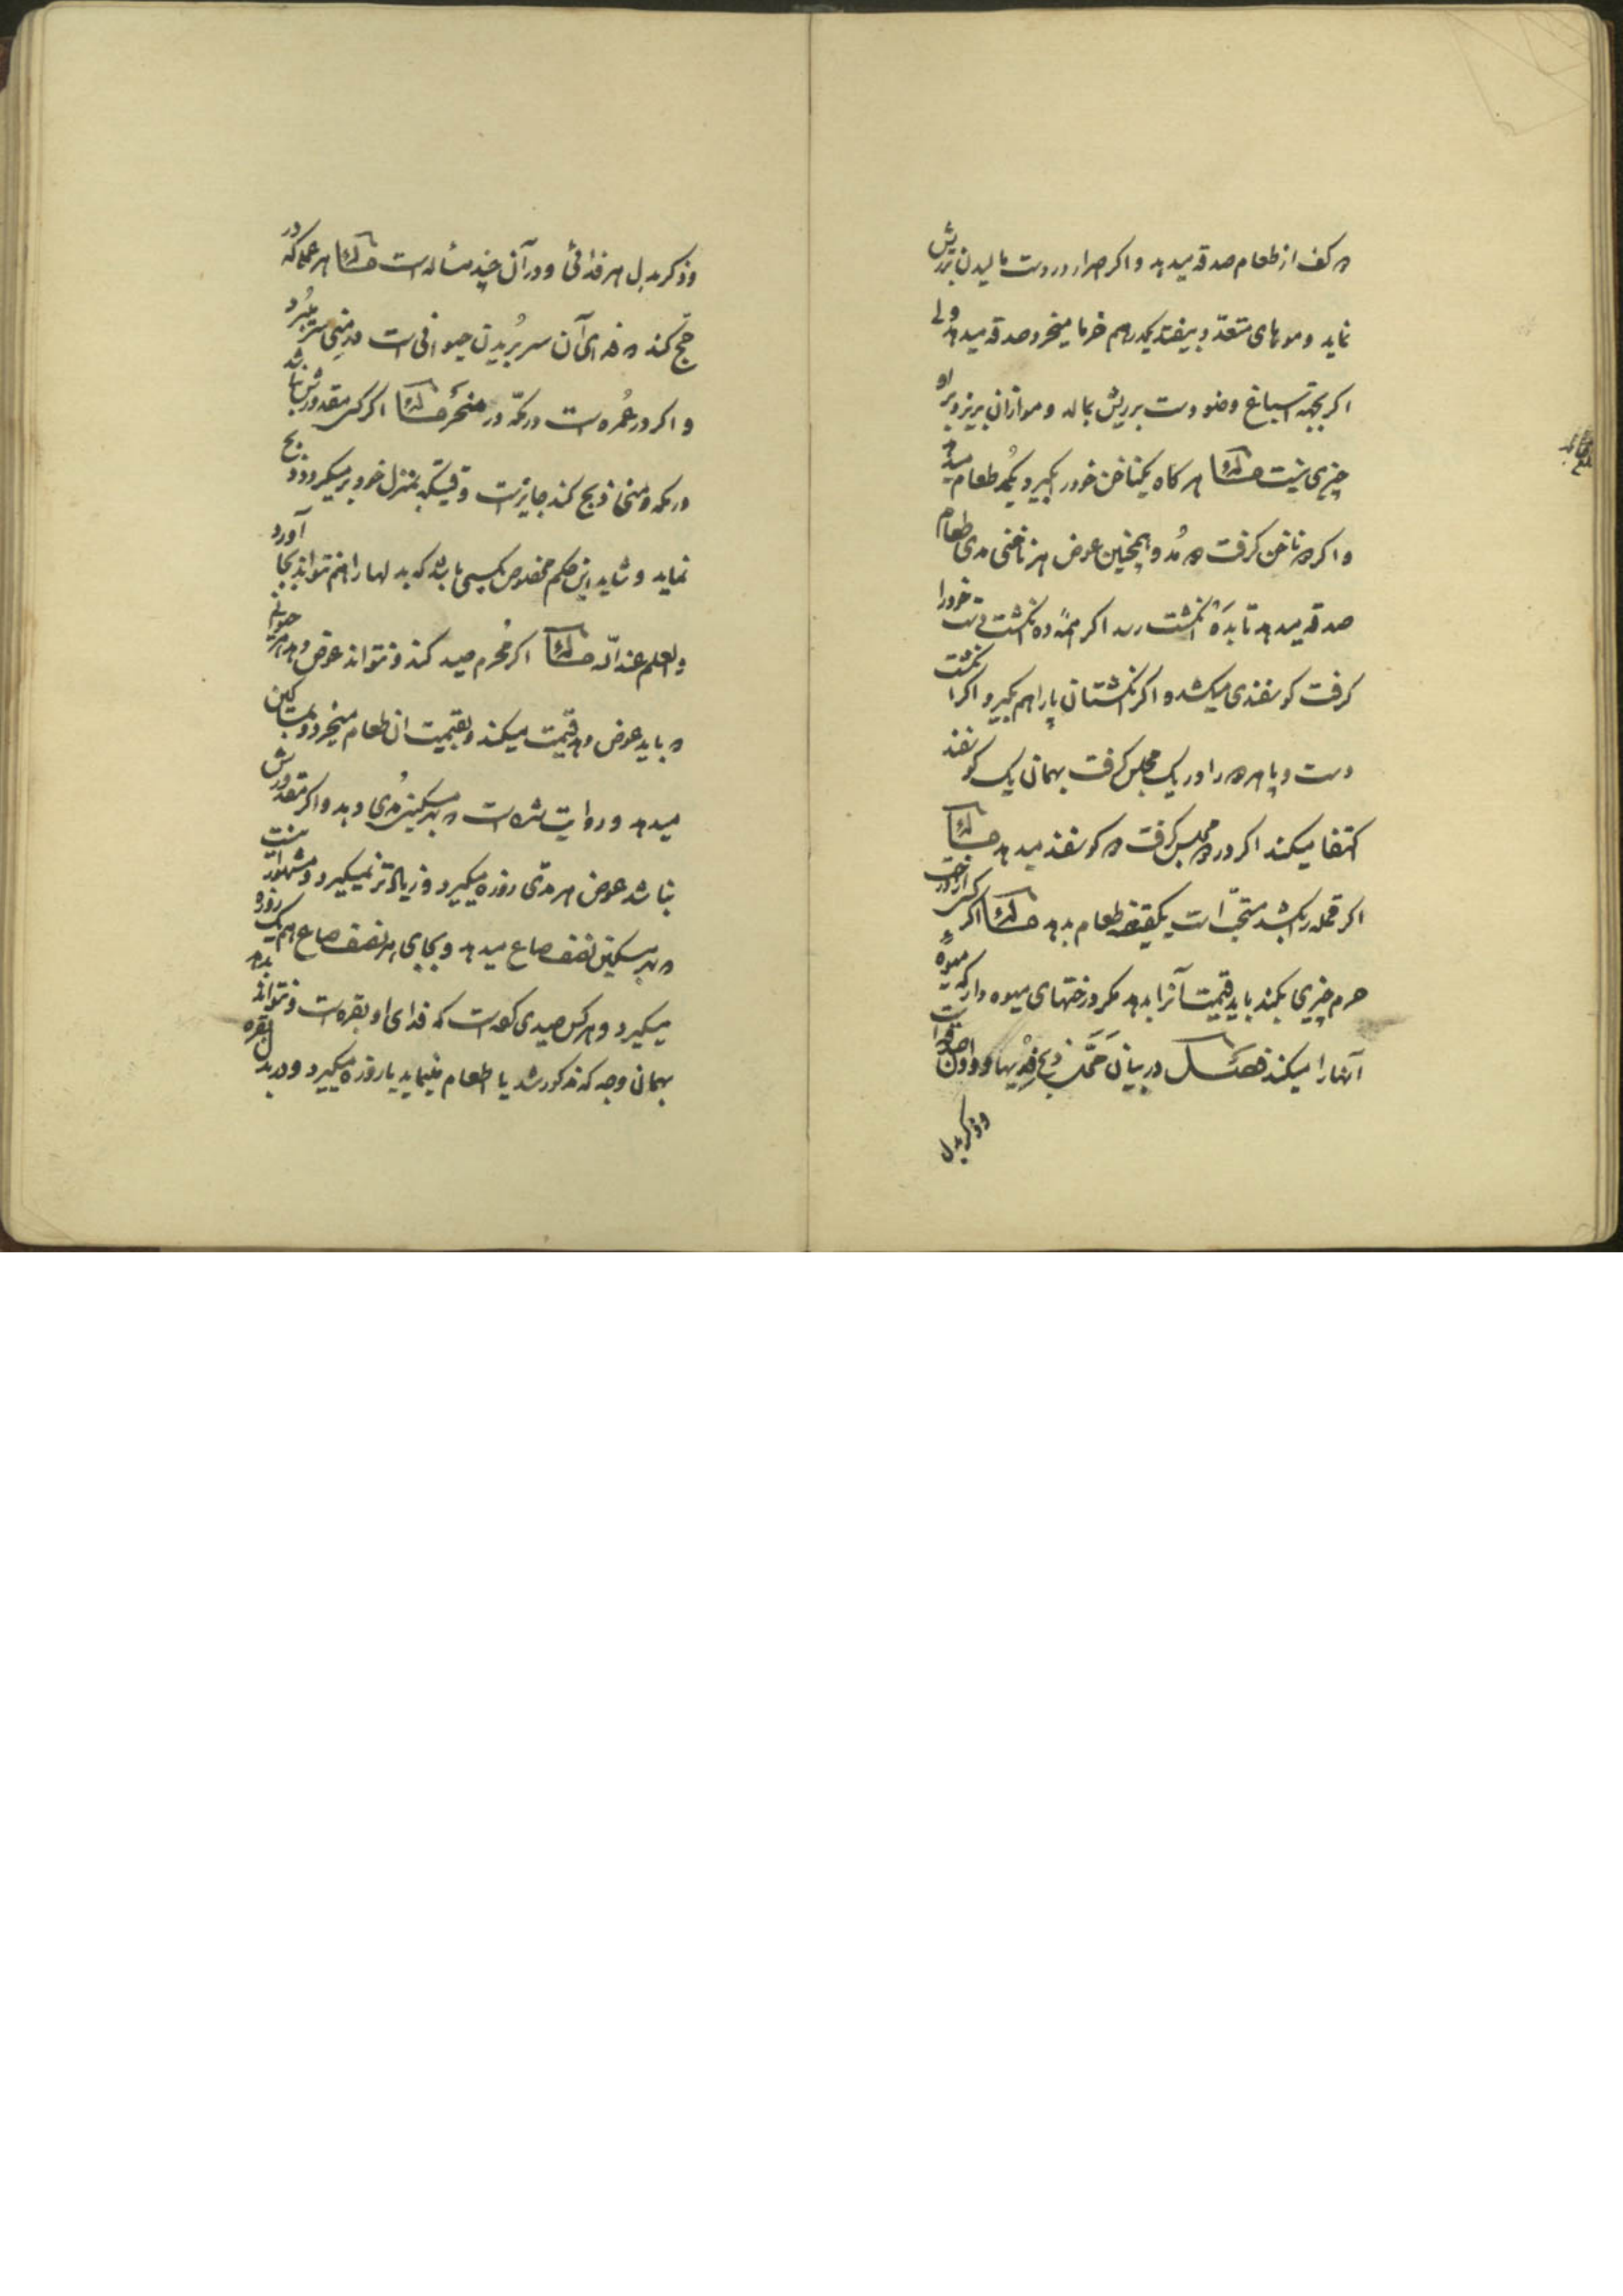 دو کف از طعام صدقه میدهد و اکر اصرار در دست مالیدن بر ریش
نماید و موهای متعدد بیفتد یکدرهم خرما میخرد و صدقه میدهد ولی
اکر بجهة اسباغ وضو دست بر ریش بمالد و مو ازان بریزد بر او
چیزی نیست مسئله هر کاه یکناخن خود را بکیرد یکمد طعام میدهد
و اکر دو ناخن کرفت دو مُد و همچنین عوض هر ناخنی مدی طعام
صدقه میدهد تا بدَه انکشت رسد اکر همهٔ ده انکشت دست خود را
کرفت کوسفندی میکشد و اکر انکشتان پا را هم بکیرد و اکر انکشت
دست و پا هر دو را در یک مجلس کرفت بهمان یک کوسفند
اکتفا میکند اکر در دو مجلس کرفت دو کوسفند میدهد مسئله
اکر قمله را بکشد مستحبّ است یکقبضه طعام بدهد مسئله اکر کسی از درخت
حرم چیزی بکند باید قیمت آنرا بدهد مکر درختهای میوه دار که میوهٔ
آنها را میکند فصل در بیان مَحَّل ذبح فِدْیها و
وذکر بدل
وذکر بدل هر فدائی و در آن چند مسأله است مسئله هر عملی که در
حَجّ کند و فدای آن سر بُریدن حیوانی است در مِنیٰ سر میبُرد
و اکر در عُمره است در مکّه در مَنحَر مسئله اکر کسی مقدورش نباشد
در مکه و منیٰ ذبح کند جایز است وقتیکه بمنزل خود بر میکردد ذبح
نماید و شاید این حکم مخصوص بکسی باشد که بدلها را هم نتواند بجا آورد
والعلم عند الله مسئله اکر مُحرم صید کند و نتواند عوض دهد هر حیوانی
و باید عوض دهد قیمت میکند و بقیمت ان طعام میخرد و بمساکین
میدهد و روایت شده است و بهر مسکین مُدی دهد و اکر مقدورش
نباشد عوض هر مدّی روزه میکیرد و زیادتر نمیکیرد و مشهور اینست
و بهر مسکین نصف صاع میدهد و بجای هر نصف صاع هم یک روزه
میکیرد و هر کس صیدی کرده است که فدای او بقره است و نتواند بدهد
بهمان وجه که مذکور شد یا اطعام مینماید یا روزه میکیرد و در بدل بقره